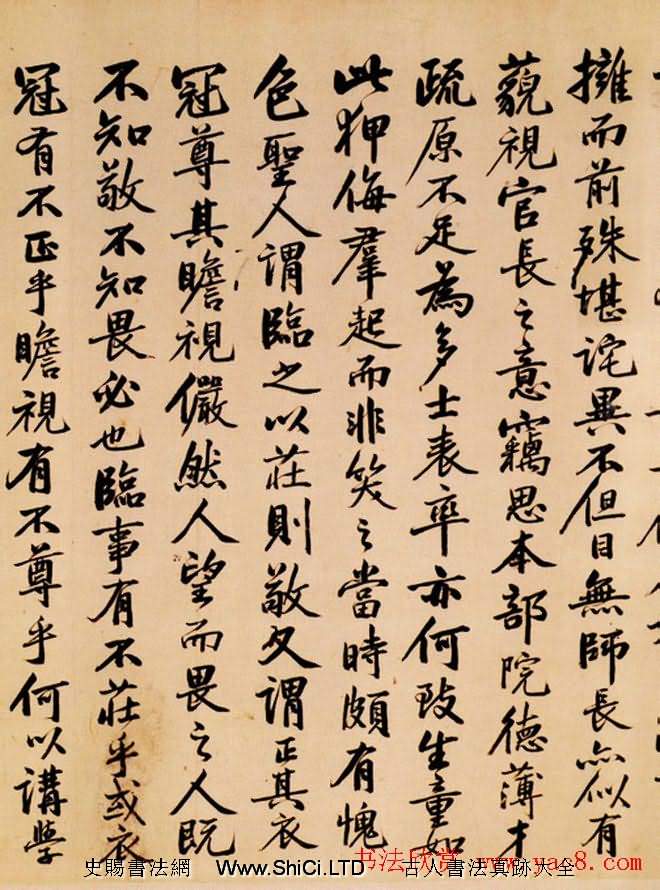 擁而前殊堪詫異不但目無師長亦似有
藐視官長之意竊思本部院德薄才
疏原不足為多士表率亦何致生童如
此狎侮羣起而非笑之當時頗有愧
色聖人謂臨之以莊則敬又謂正其衣
冠尊其瞻視儼然人望而畏之人既
不知敬不知畏必也臨事有不莊乎或衣
冠有不正乎瞻視有不尊乎何以講學
史賜書法網 Www.ShiCi.LTD 古人書法真跡大全
书法欣赏 www.yac8.com